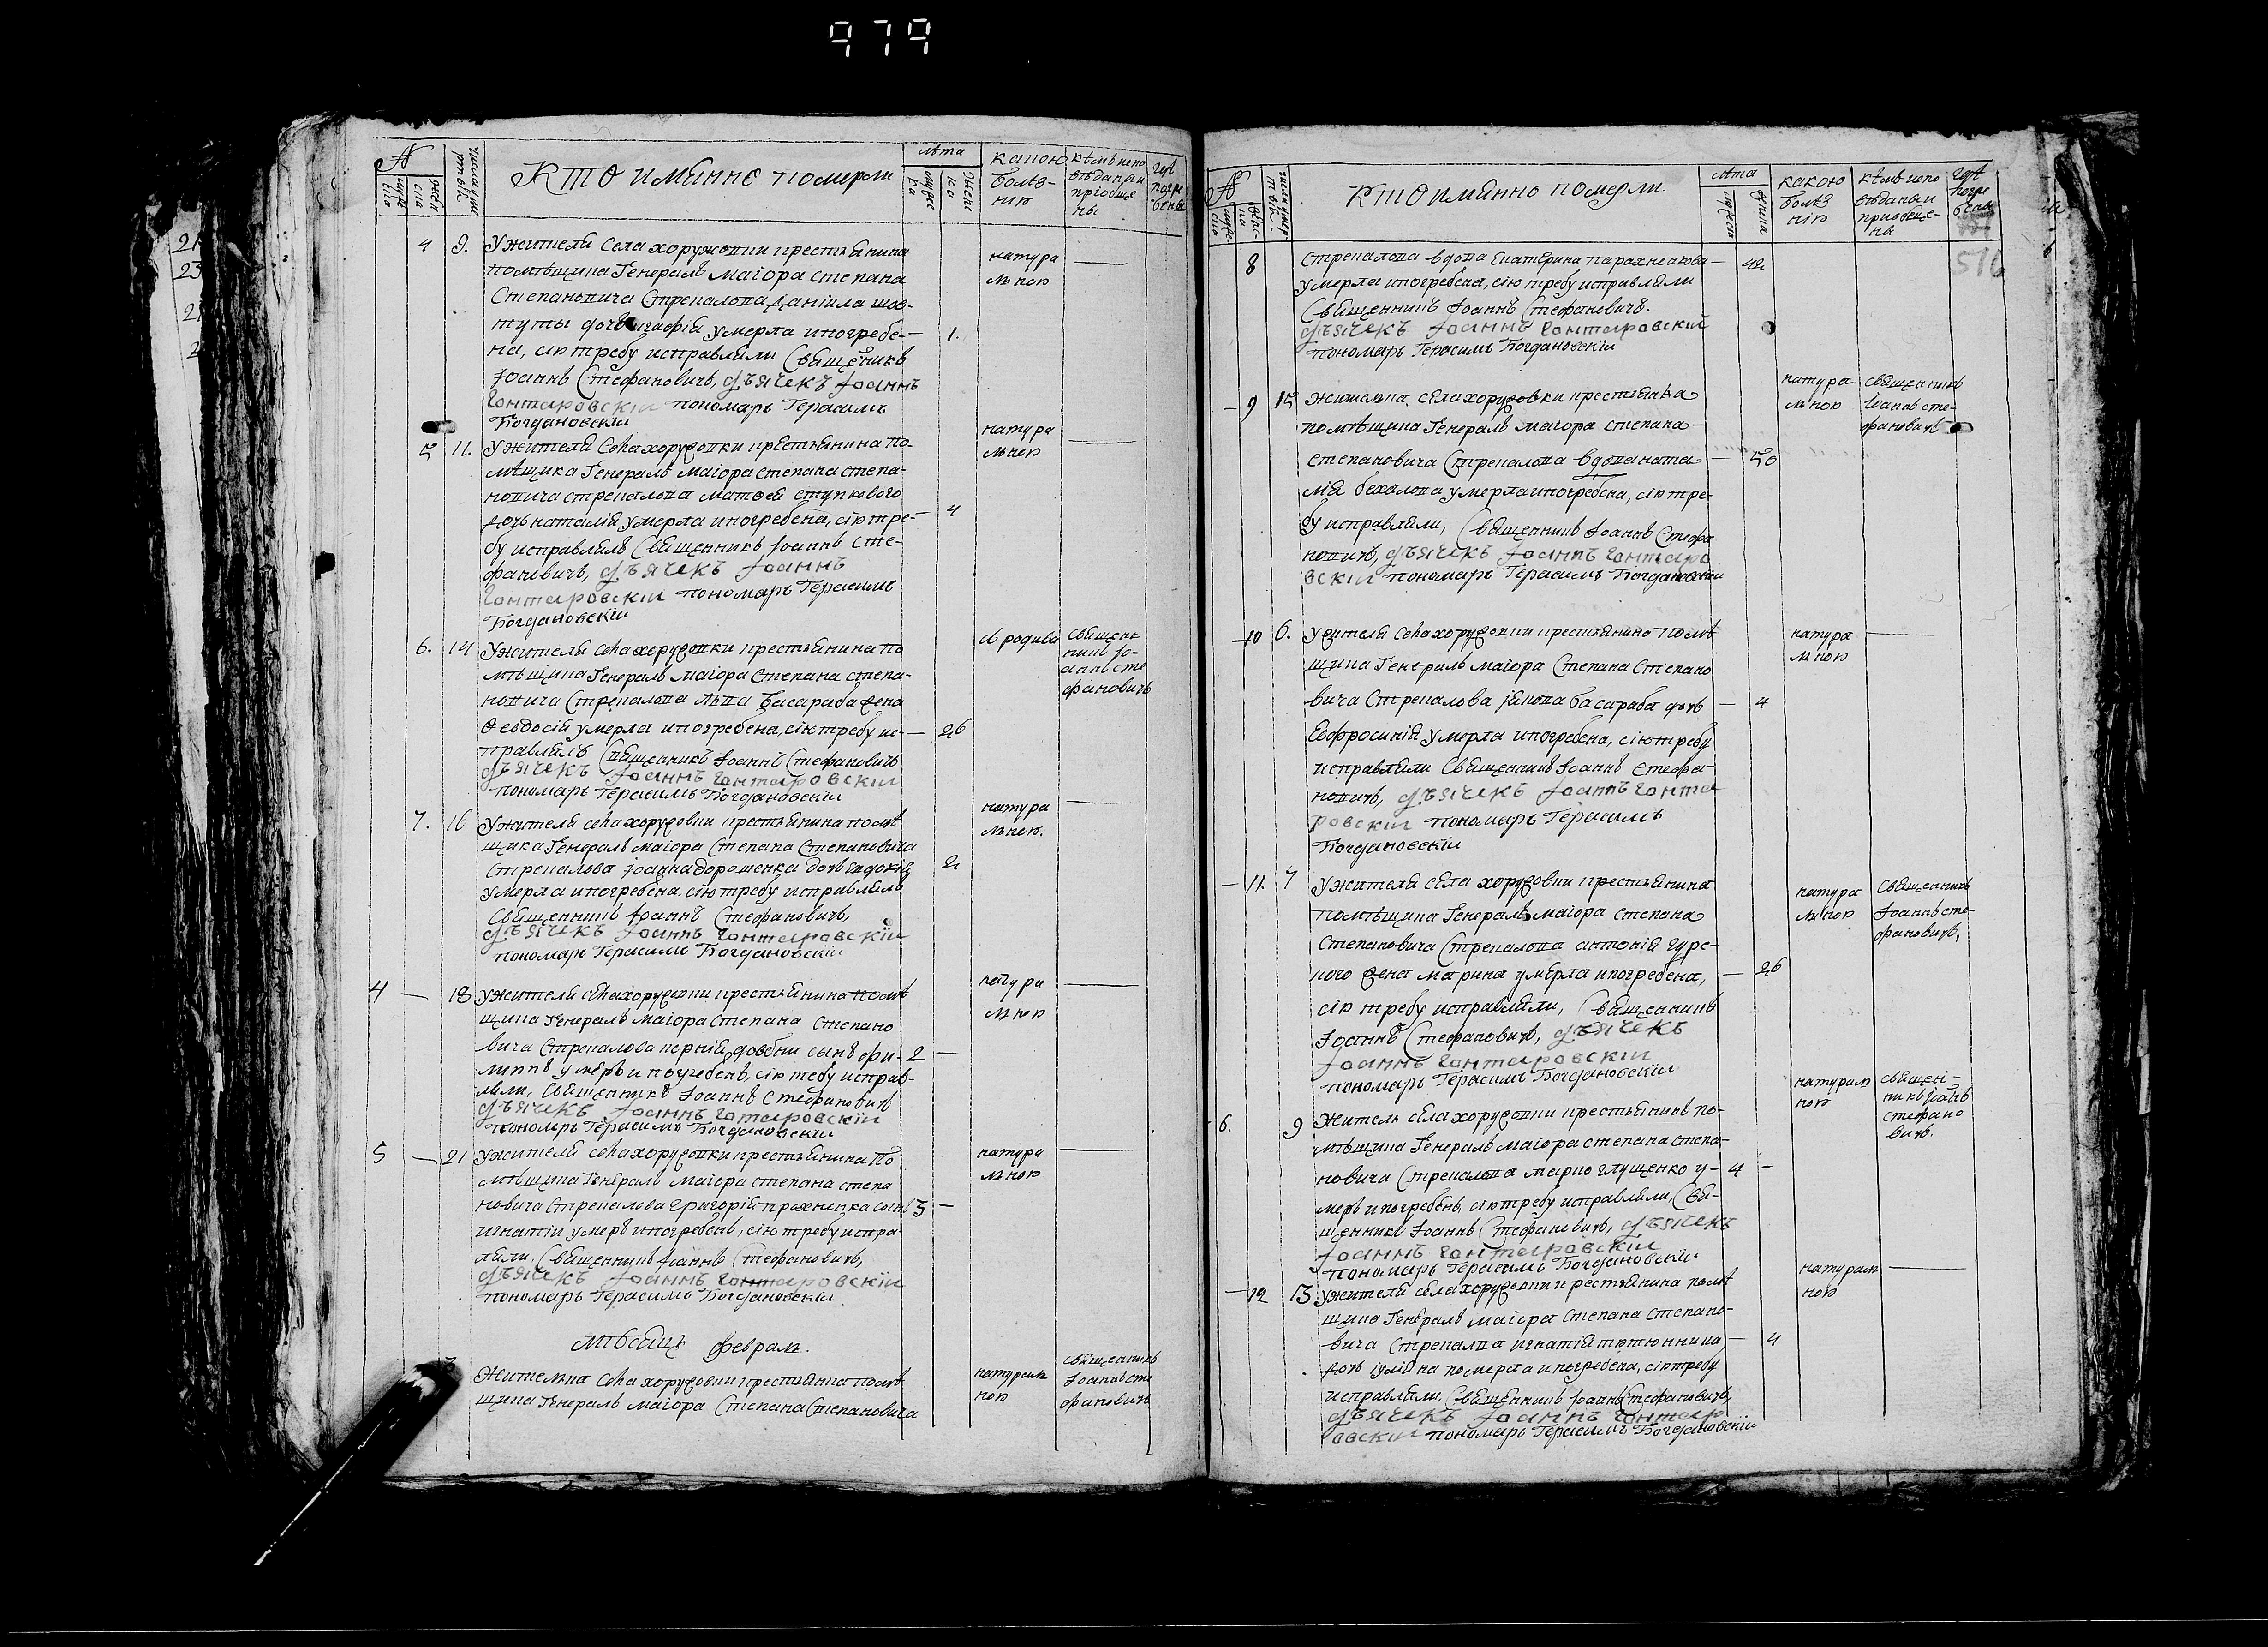 979
№
лѣта
Кто имянно померли
какою болѣзнію
4 9. У жителя Села хоружовки крестьянина
помѣщика Генералъ маіора степана
Степановича Стрекалова Даніила
умерла и погребе- 1.
на, сію требу исправляли Священикъ
Іоаннъ Стефановичъ, дъячекъ Іоаннъ
Гонтаровскій пономарь Герасимъ
Богдановскій
натуральною
5 11. У жителя Села хоружовки крестьянина по-
мѣщика Генералъ маіора степана степа-
новича стрекалова матѳея
дочь наталія умерла и погребена, сію тре- 4
бу исправлялъ Священникъ Іоаннъ Сте-
фановичъ, дъячекъ Іоаннъ
Гонтаровскій пономарь Герасимъ
Богдановскій
натуральною
6. 14 У жителя Села хоружовки крестьянина по
мѣщика Генералъ маіора Степана степа-
новича Стрекалова Басараба жена
Феодосія умерла и погребена, сію требу ис- 26
правлялъ Священикъ Іоаннъ Стефановичъ
дъячекъ Іоаннъ Гонтаровскій
пономарь Герасимъ Богдановскій
священникъ Іоаннъ стефановичъ
7. 16 У жителя села хоружовки крестьянина помѣ
щика Генералъ маіора Степана Степановича
Стрекалова Іоанна дорошенка дочь 2
умерла и погребена. сію требу исправлялъ
Священникъ Іоаннъ Стефановичъ,
дъячекъ Іоаннъ Гонтаровскій
пономарь Герасимъ Богдановскій
натуральною.
4 — 18 У жителя села хоружовки крестьянина помѣ
щика Генералъ маіора Степана Степано
вича Стрекалова сынъ фи- 2 —
липпъ умеръ и погребенъ, сію требу исправ-
ляли, Священникъ Іоаннъ Стефановичъ
дъячекъ Іоаннъ Гонтаровскій
пономарь Герасимъ Богдановскій
5 — 21 У жителя села хоружовки крестьянина по
мѣщика Генералъ маіора степана степа
новича Стрекалова Григорія сынъ 3 —
игнатій умеръ и погребенъ, сію требу испра
ляли, Священникъ Іоаннъ Стефановичъ,
дъячекъ Іоаннъ Гонтаровскій
пономарь Герасимъ Богдановскій
натуральною
Мѣсяцъ февраль.
Жителька села хоружовки крестьянка помѣ
щика Генералъ маіора Степана Степановича
натуральною
священникъ Іоаннъ стефановичъ
№
лѣта
Кто имянно померли
какою болѣзнію
516
8 Стрекалова вдова Екатерина — 42
умерла и погребена, сію требу исправляли
Священникъ Іоаннъ Стефановичъ.
дъячекъ Іоаннъ Гонтаровскій
пономарь Герасимъ Богдановскій
— 9 15 жителька села хоружовки крестьянка
помѣщика Генералъ маіора степана
степановича Стрекалова вдова ната — 50
лія умерла и погребена, сію тре-
бу исправляли, Священникъ Іоаннъ Стефа
новичъ, дъячекъ Іоаннъ Гонтаро
вскій пономарь Герасимъ Богдановскій
натуральною
священникъ Іоаннъ стефановичъ
— 10 6. У жителя села хоружовки крестьянина помѣ
щика Генералъ маіора Степана Степано
вича Стрекалова басараба дочь — 4
Евфросинія умерла и погребена, сію требу
исправляли Священникъ Іоаннъ Стефа-
новичъ, дъячекъ Іоаннъ Гонта
ровскій пономарь Герасимъ
Богдановскій
натуральною
— 11. 7 У жителя села хоружовки крестьянина
помѣщика Генералъ маіора степана
Степановича Стрекалова антонія
жена марина умерла и погребена, — 26
сію требу исправляли, Священникъ
Іоаннъ Стефановичъ, дъячекъ
Іоаннъ Гонтаровскій
пономарь Герасимъ Богдановскій
натуральною
Священникъ Іоаннъ стефановичъ,
6. 9 Житель села хоружовки крестьянинъ по-
мѣщика Генералъ маіора степана степа-
новича Стрекалова глущенко у- 4 —
меръ и погребенъ, сію требу исправляли, Свя-
щенникъ Іоаннъ Стефановичъ, дъячекъ
Іоаннъ Гонтаровскій
пономарь Герасимъ Богдановскій
натуральною
— 12 13 У жителя села хоружовки крестьянина помѣ
щика Генералъ маіора Степана Степано-
вича Стрекалова игнатія — 4
дочь померла и погребена, сію требу
исправляли, Священникъ Іоаннъ Стефановичъ,
дъячекъ Іоаннъ Гонтар
овскій пономарь Герасимъ Богдановскій
натуральною